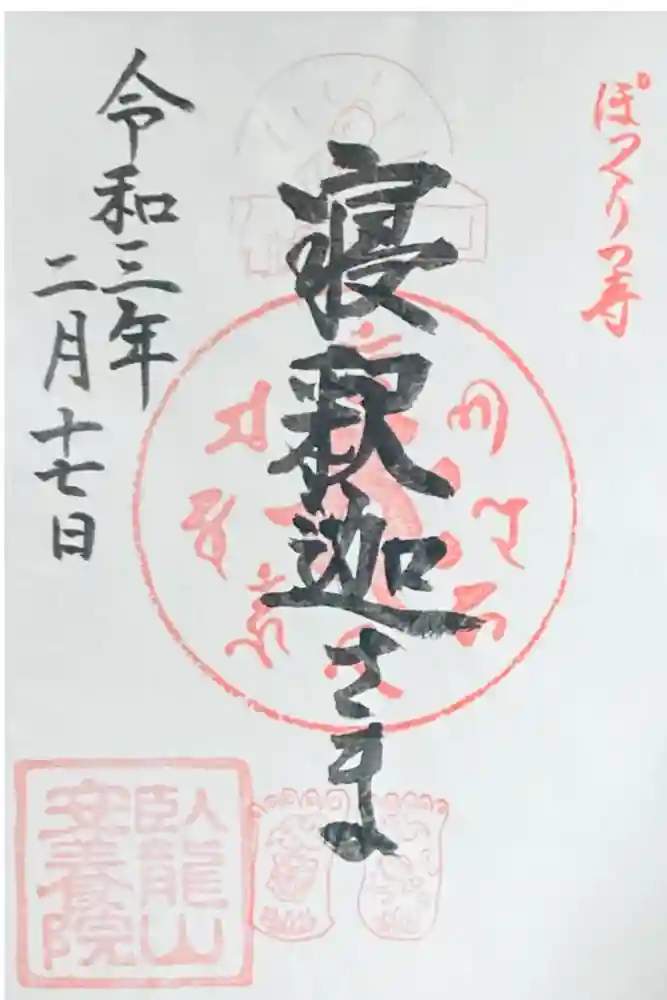 ぽっくり寺
寝釈迦さま
令和三年
二月十七日
臥龍山
安養院